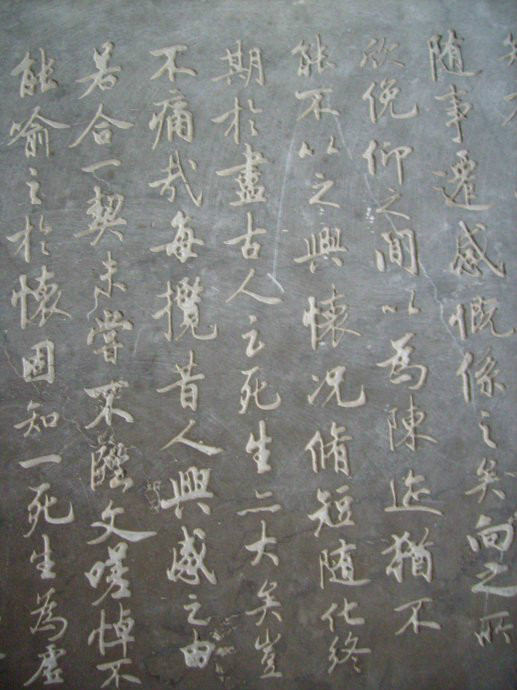 随事遷感慨係之矣向之所
欣俛仰之間以為陳迹猶不
能不以之興懷况脩短随化終
期於盡古人云死生亦大矣豈
不痛哉每攬昔人興感之由
若合一契未嘗不臨文嗟悼不
能喻之於懷固知一死生為虛